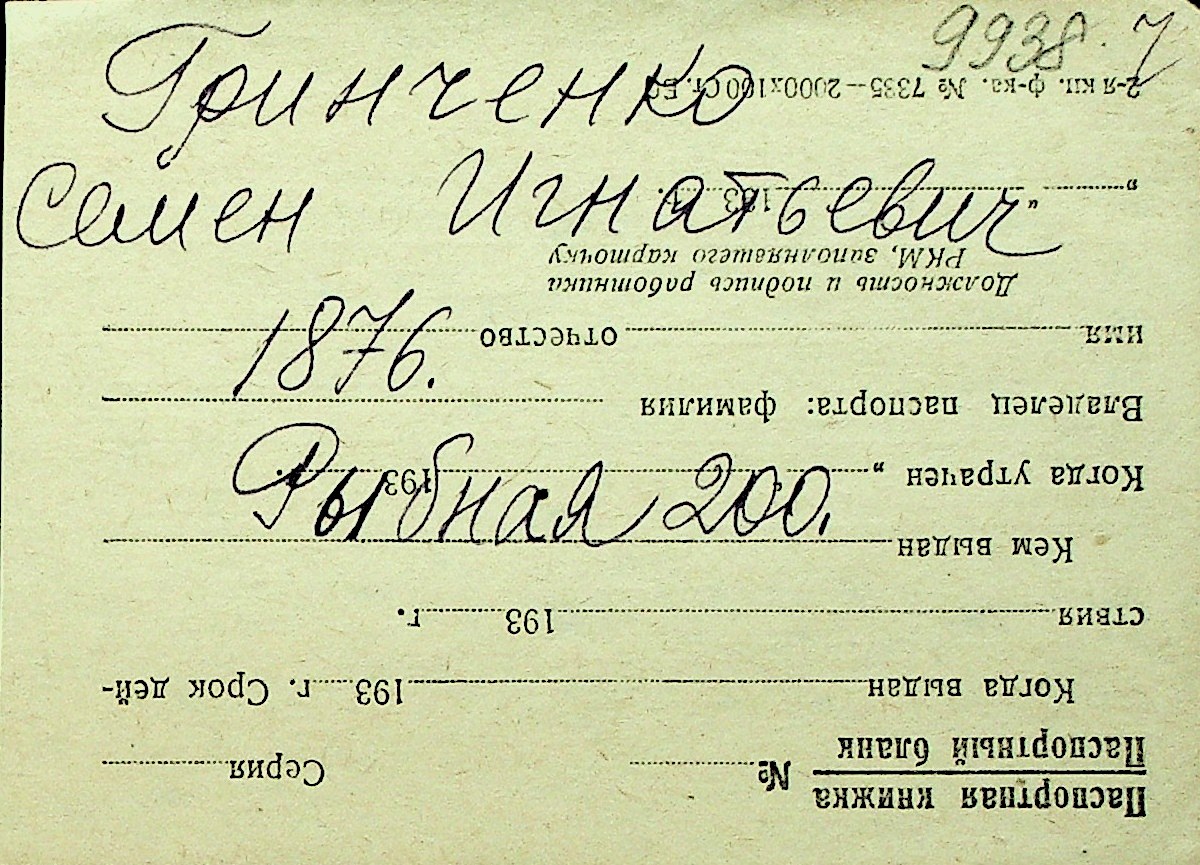 9938. 7
Гринченко
Семен Игнатьевич
1876.
Рыбная 200.
Паспортная книжка
Паспортный бланк
№ Серия
Когда выдан 193 г. Срок дей-
ствия 193 г.
Кем выдан
Когда утрачен „ “ 193
Владелец паспорта: фамилия
имя отчество
Должность и подпись работника
РКМ, заполнявшего карточку
„ “ 193 г.
2-я кп. ф-ка. № 7335—2000х100